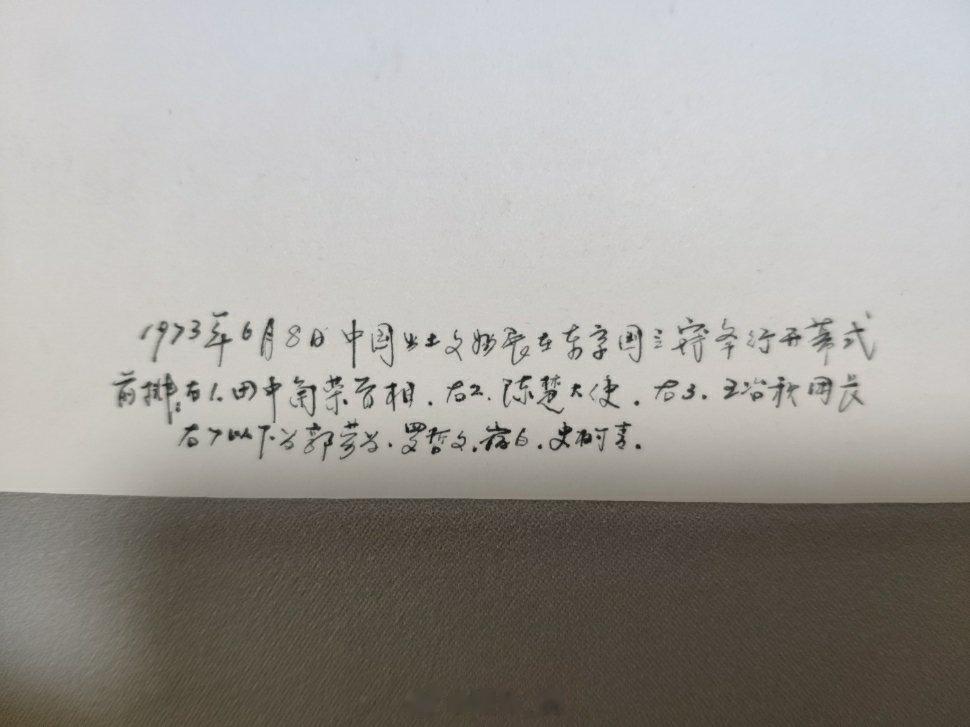 1973年6月8日中国出土文物展在东京国立举行开幕式
前排:右1.田中角荣首相.右2.陈楚大使.右3.王冶秋团长
右7以下为郭劳为.罗哲文.崔白.史树青.